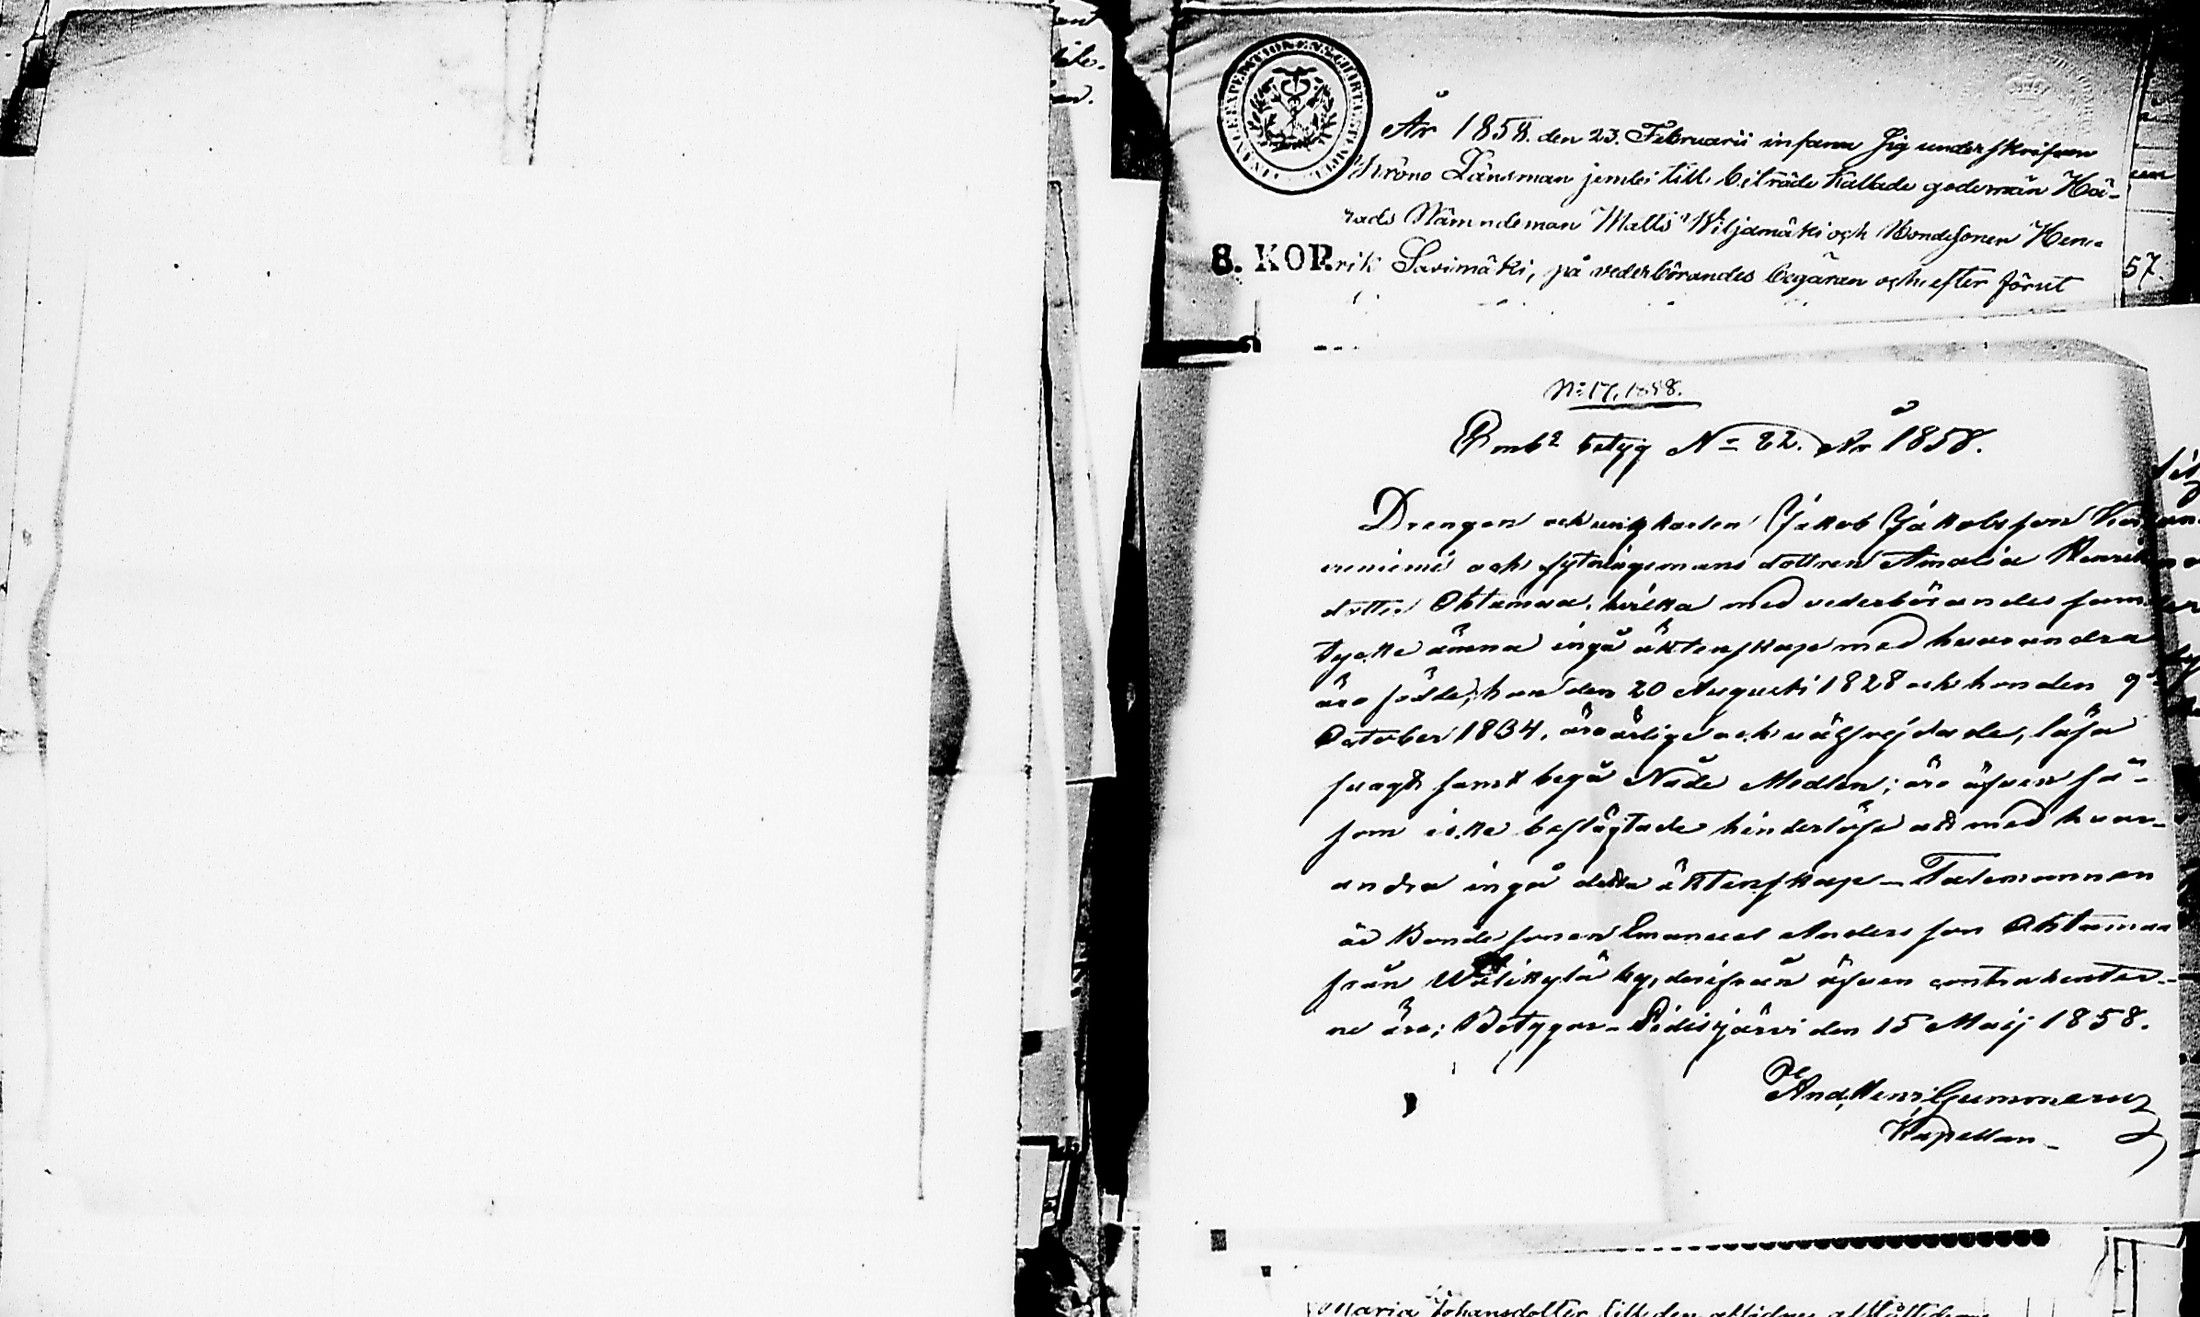 År 1858. den 23. Februarii infann sig underskrifven
Krono Länsman jemte till biträde kallade godemän Hä-
rads Nämndeman Matts Wiljamäki och Bondesonen Hen-
8. KOP.
rik Savimäki, på vederbörandes begäran och efter förut
57.
No 17, 1858.
Emb: betyg No 22. År 1858.
Drengen och enklingen Jakob Jakobsson
niemi och sytningsmans dottren Amalia Henriks
dotter Ohtamaa, hvilka med vederbörandes sam-
tycke ämna ingå äktenskap med hvarandra
äro födde, han den 20 Augusti 1828 och hon den 9
October 1834, äro ärlige och välfrejdade, läsa
svagt samt begå Nåde Medlen; äro äfven så-
som icke beslägtade hinderlöse att med hvar-
andra ingå detta äktenskap – Talemannen
är Bondesonen Emanuel Andersson Ohtamaa
från Wälikylä by, derifrån äfven contrahenter-
ne äro; Betygar – Pidisjärvi den 15 Maij 1858.
And. Henr. Gummerus
Kapellan –
Maria Johansdotter till den aflidne